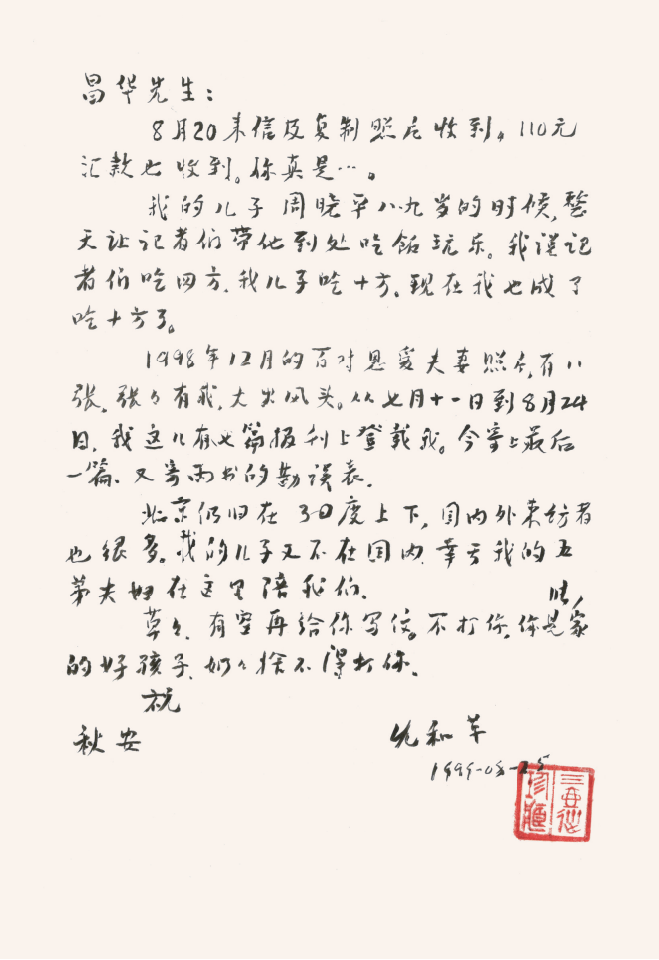 昌华先生：
8月20来信及复制照片收到。110元
汇款也收到。你真是…。
我的儿子周晓平八九岁的时候，整
天让记者们带他到处吃饭玩乐。我说记
者们吃四方，我儿子吃十方，现在我也成了
吃十方了。
1998年12月的百对恩爱夫妻照片，有八
张，张々有我，大出风头。从七月十一日到8月24
日，我这儿有七篇报刊上登载我。今寄上最后
一篇、又寄两书的勘误表。
北京仍旧在30度上下，国内外来访者
也很多。我的儿子又不在国内，幸亏我的五
弟夫妇在这里陪我们。
草々，有空再给你写信。不打你，你是家
的好孩子，奶々舍不得打你。
祝
秋安
允和草
1999-08-25